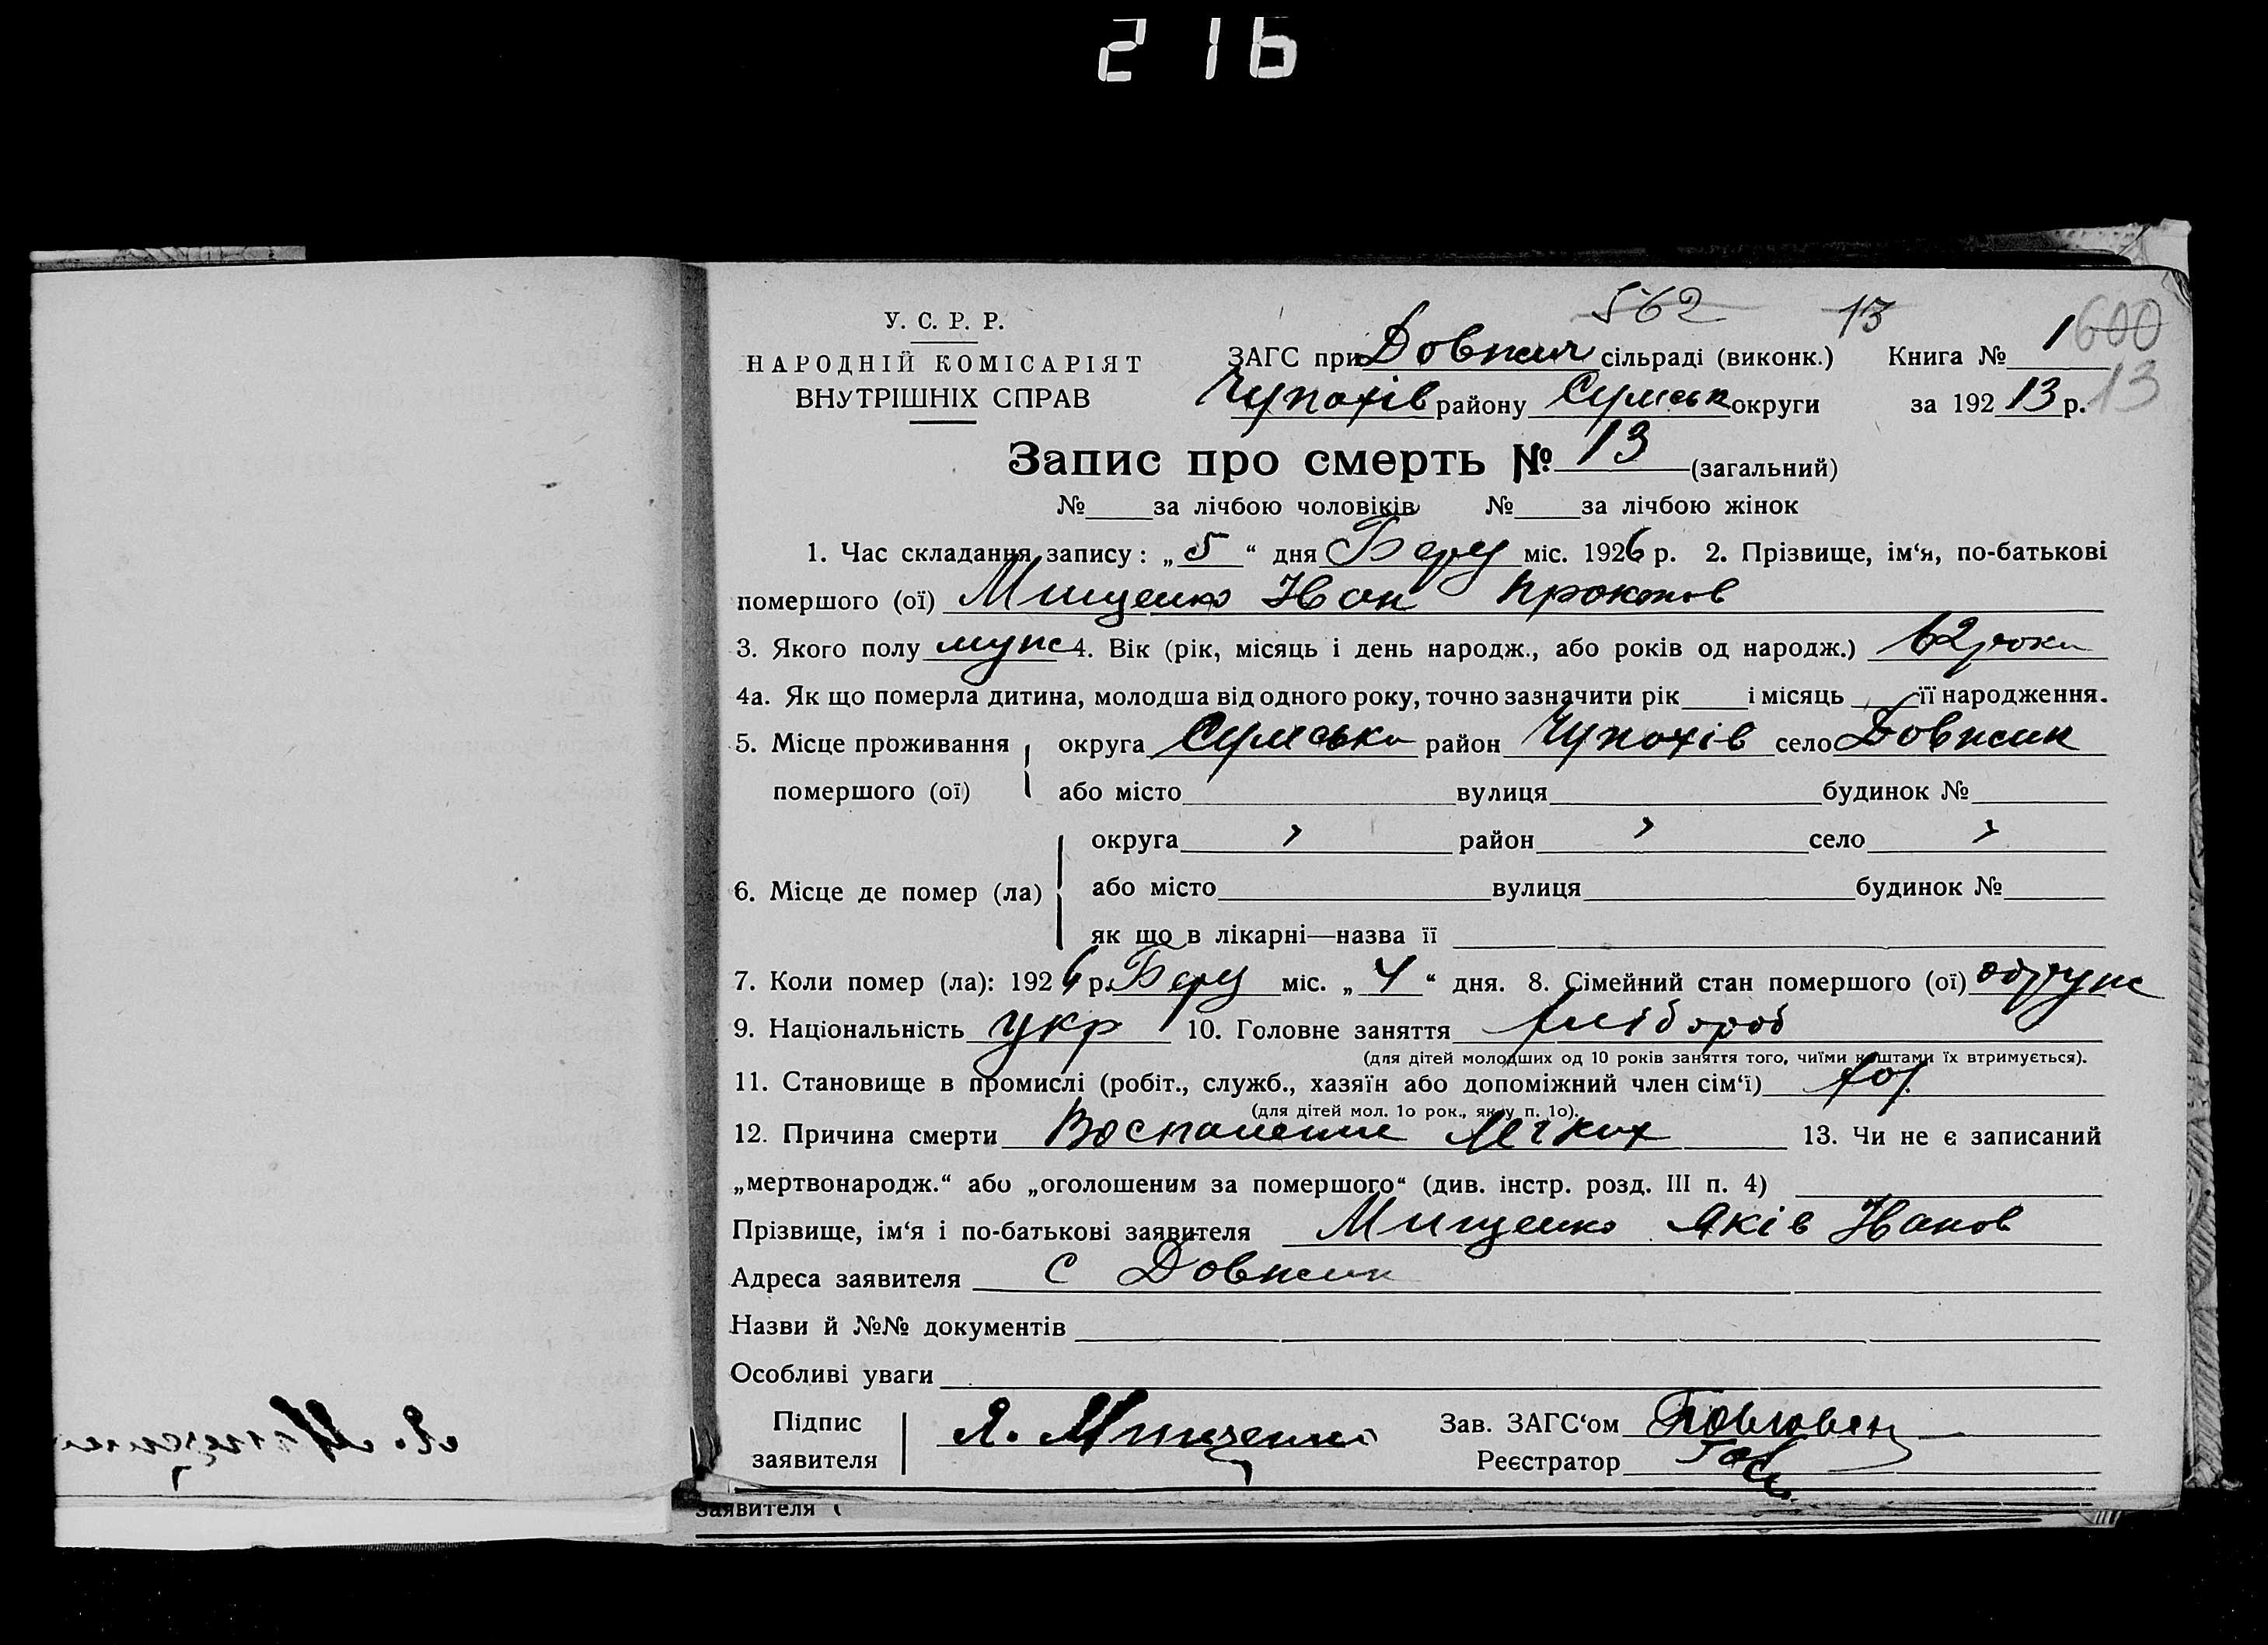 216
562 13 600
У. С. Р. Р.
НАРОДНІЙ КОМІСАРІЯТ
ВНУТРІШНІХ СПРАВ
ЗАГС при Довжич сільраді (виконк.) Книга № 1
Чупахів району Сумськ округи за 192 13 р. 13
Запис про смерть № 13 (загальний)
№ за лічбою чоловіків № за лічбою жінок
1. Час складання запису: „ 5 “ дня Бер міс. 1926 р. 2. Прізвище, ім‘я, по-батькові
помершого (ої) Мищенко Иван Прокопов
3. Якого полу муж 4. Вік (рік, місяць і день народж., або років од народж.) 62 роки
4а. Як що померла дитина, молодша від одного року, точно зазначити рік і місяць її народження.
5. Місце проживання округа Сумська район Чупахів село Довжик
помершого (ої) або місто вулиця будинок №
округа › район › село ›
6. Місце де помер (ла) або місто вулиця будинок №
як що в лікарні—назва її
7. Коли помер (ла): 1926 р. Бер міс. „ 4 “ дня. 8. Сімейний стан помершого (ої) одруж
9. Національність укр 10. Головне заняття хлібороб
(для дітей молодших од 10 років заняття того, чиїми коштами їх втримується).
11. Становище в промислі (робіт., служб., хазяїн або допоміжний член сім‘ї) хоз.
(для дітей мол. 1о рок., як у п. 1о).
12. Причина смерти Воспаление Легких 13. Чи не є записаний
„мертвонародж.“ або „оголошеним за помершого“ (див. інстр. розд. III п. 4)
Прізвище, ім‘я і по-батькові заявителя Мищенко Яків Иванов
Адреса заявителя С Довжик
Назви й №№ документів
Особливі уваги
Підпис заявителя Я. Мищенко Зав. ЗАГС‘ом
Реєстратор
заявителя